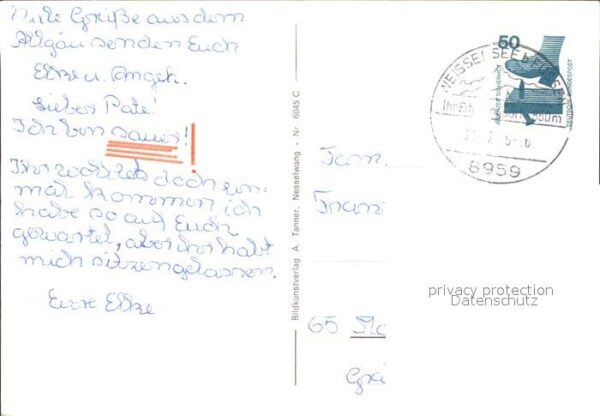 Viele Grüße aus dem
Allgäu senden Euch
Elke u. Angeh.
Lieber Pate!
Ich bin sauer!
Ihr wolltet doch ein-
mal kommen ich
habe so auf Euch
gewartet, aber ihr habt
mich sitzengelassen.
Eure Elke
Bildkunstverlag A. Tanner, Nesselwang - Nr. 6045 C
50
DEUTSCHE BUNDESPOST
WEISSENSEE b. FÜSSEN
8959
Fam.
65
privacy protection
Datenschutz